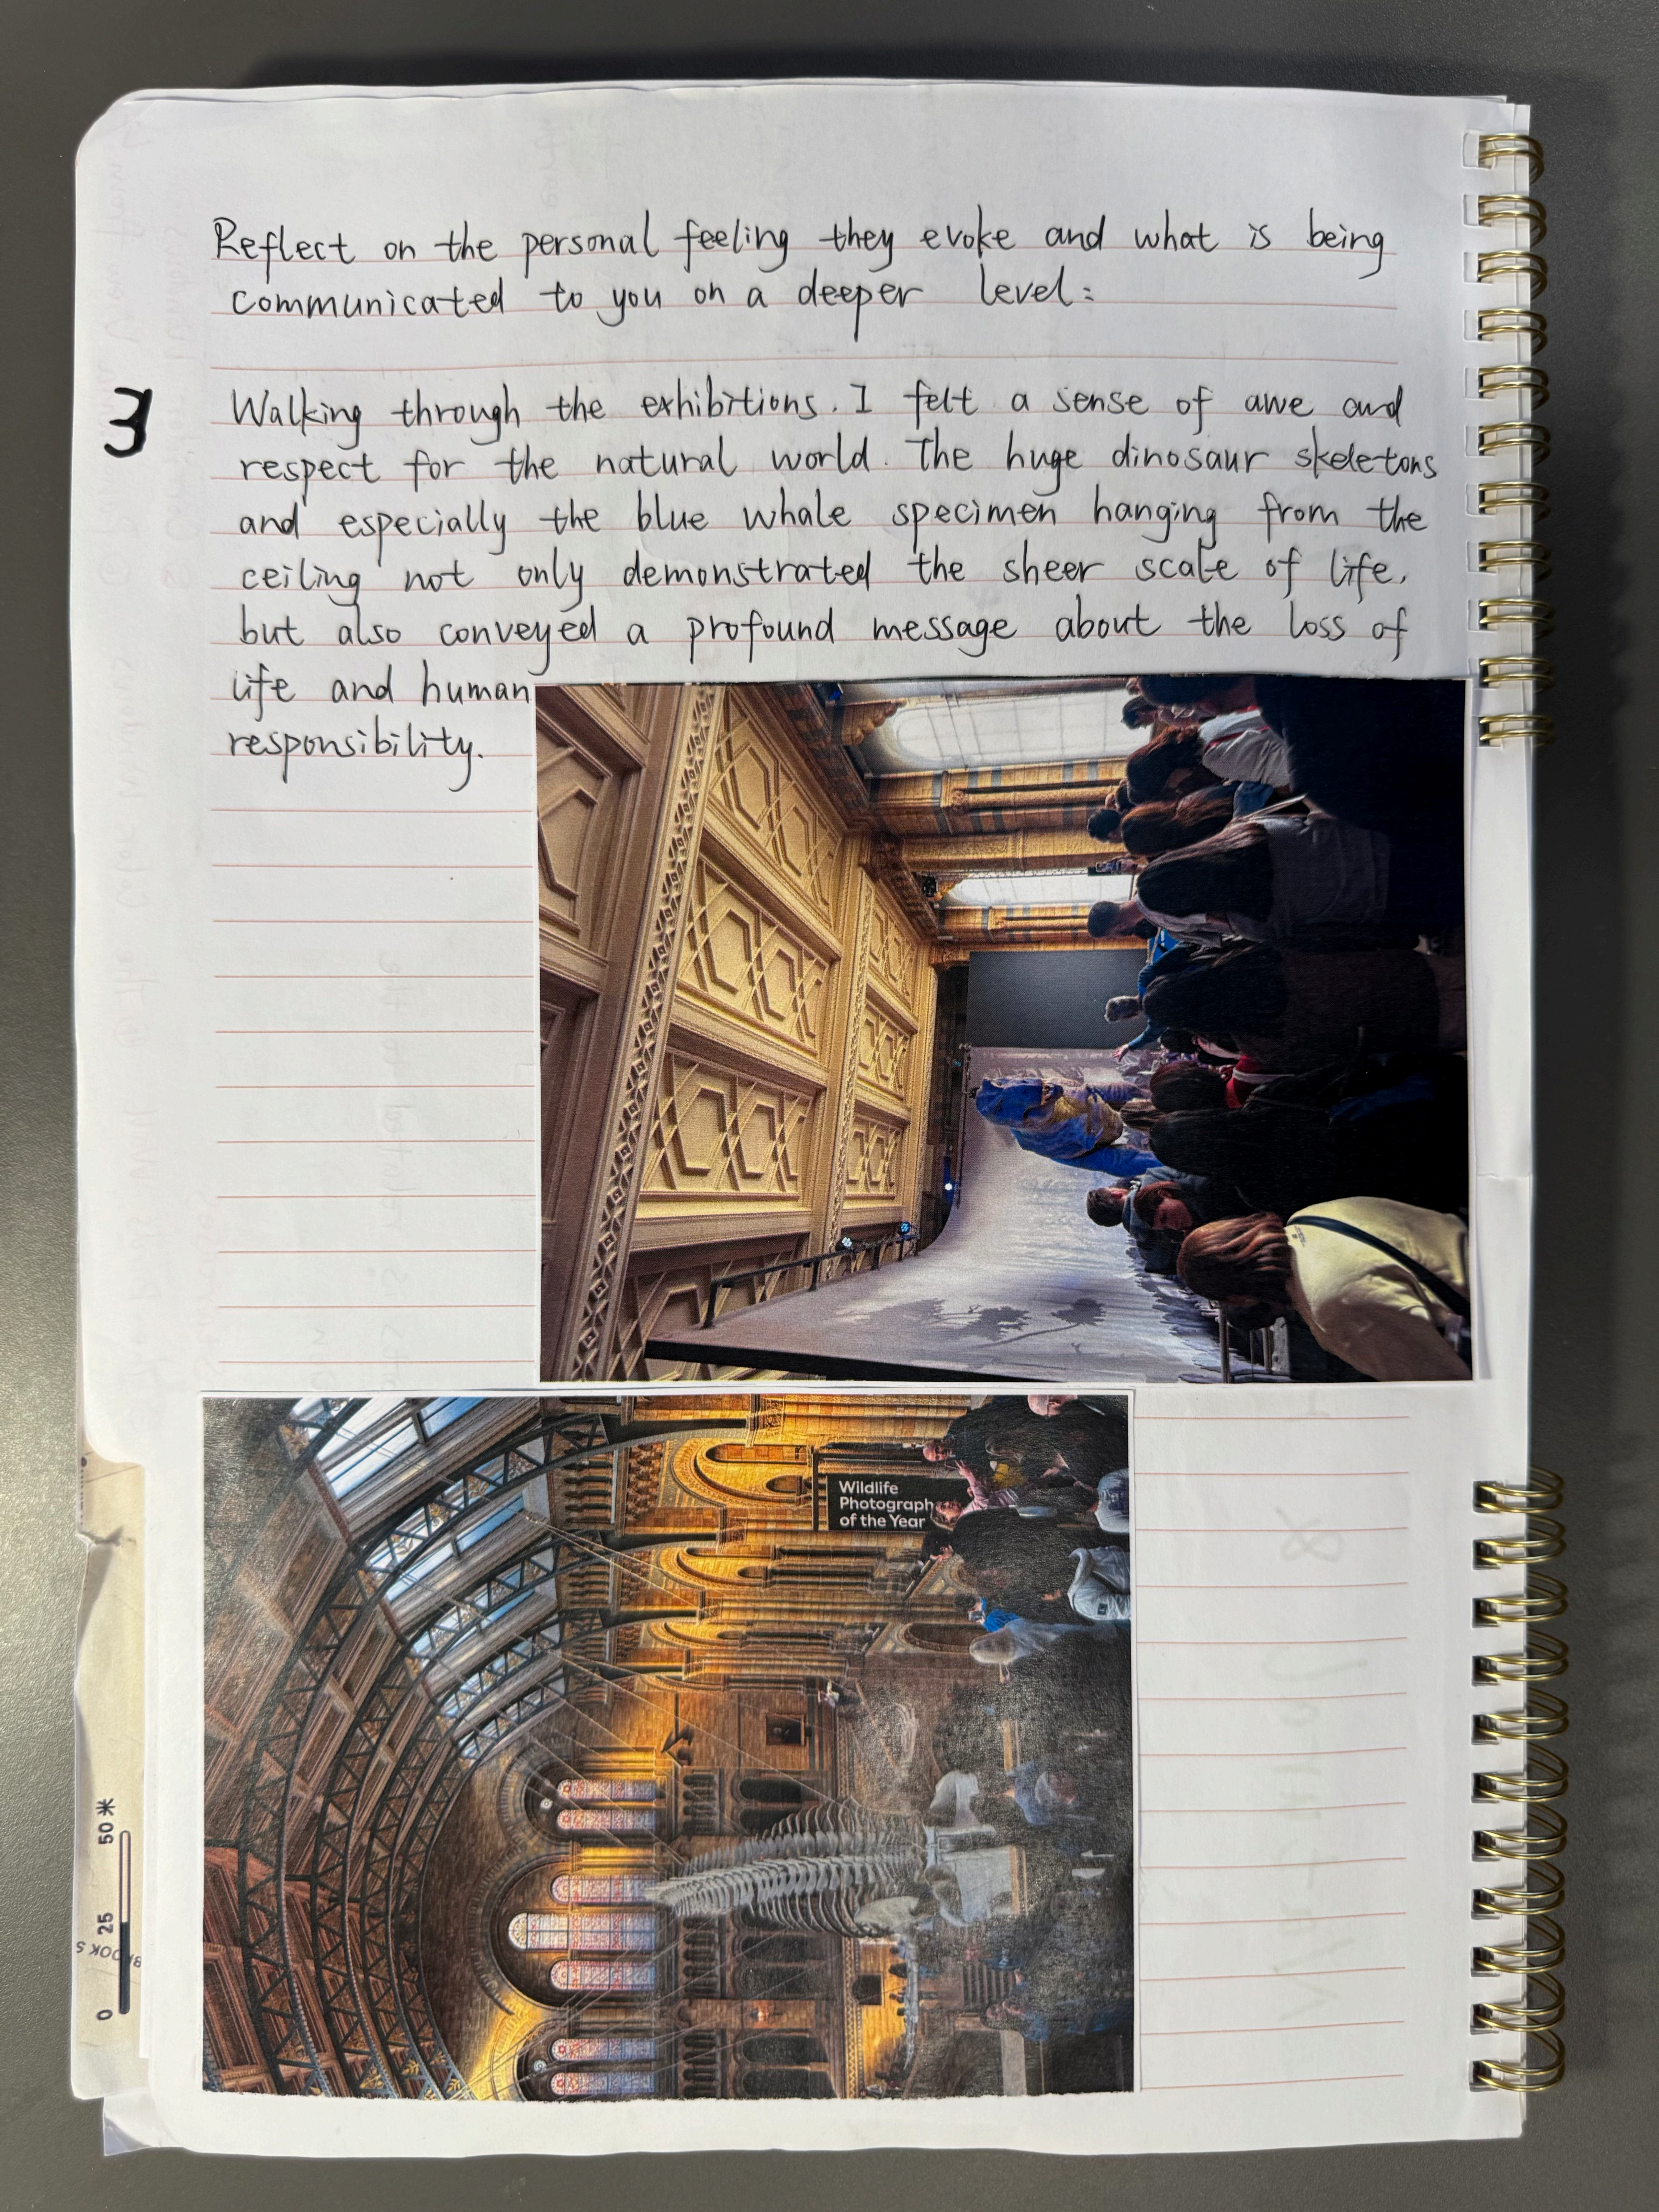 Reflect on the personal feeling they evoke and what is being
communicated to you on a deeper level:
3
Walking through the exhibitions. I felt a sense of awe and
respect for the natural world. The huge dinosaur skeletons
and especially the blue whale specimen hanging from the
ceiling not only demonstrated the sheer scale of life,
but also conveyed a profound message about the loss of
life and human
responsibility.
Wildlife
Photograph
of the Year
0 25 50 米